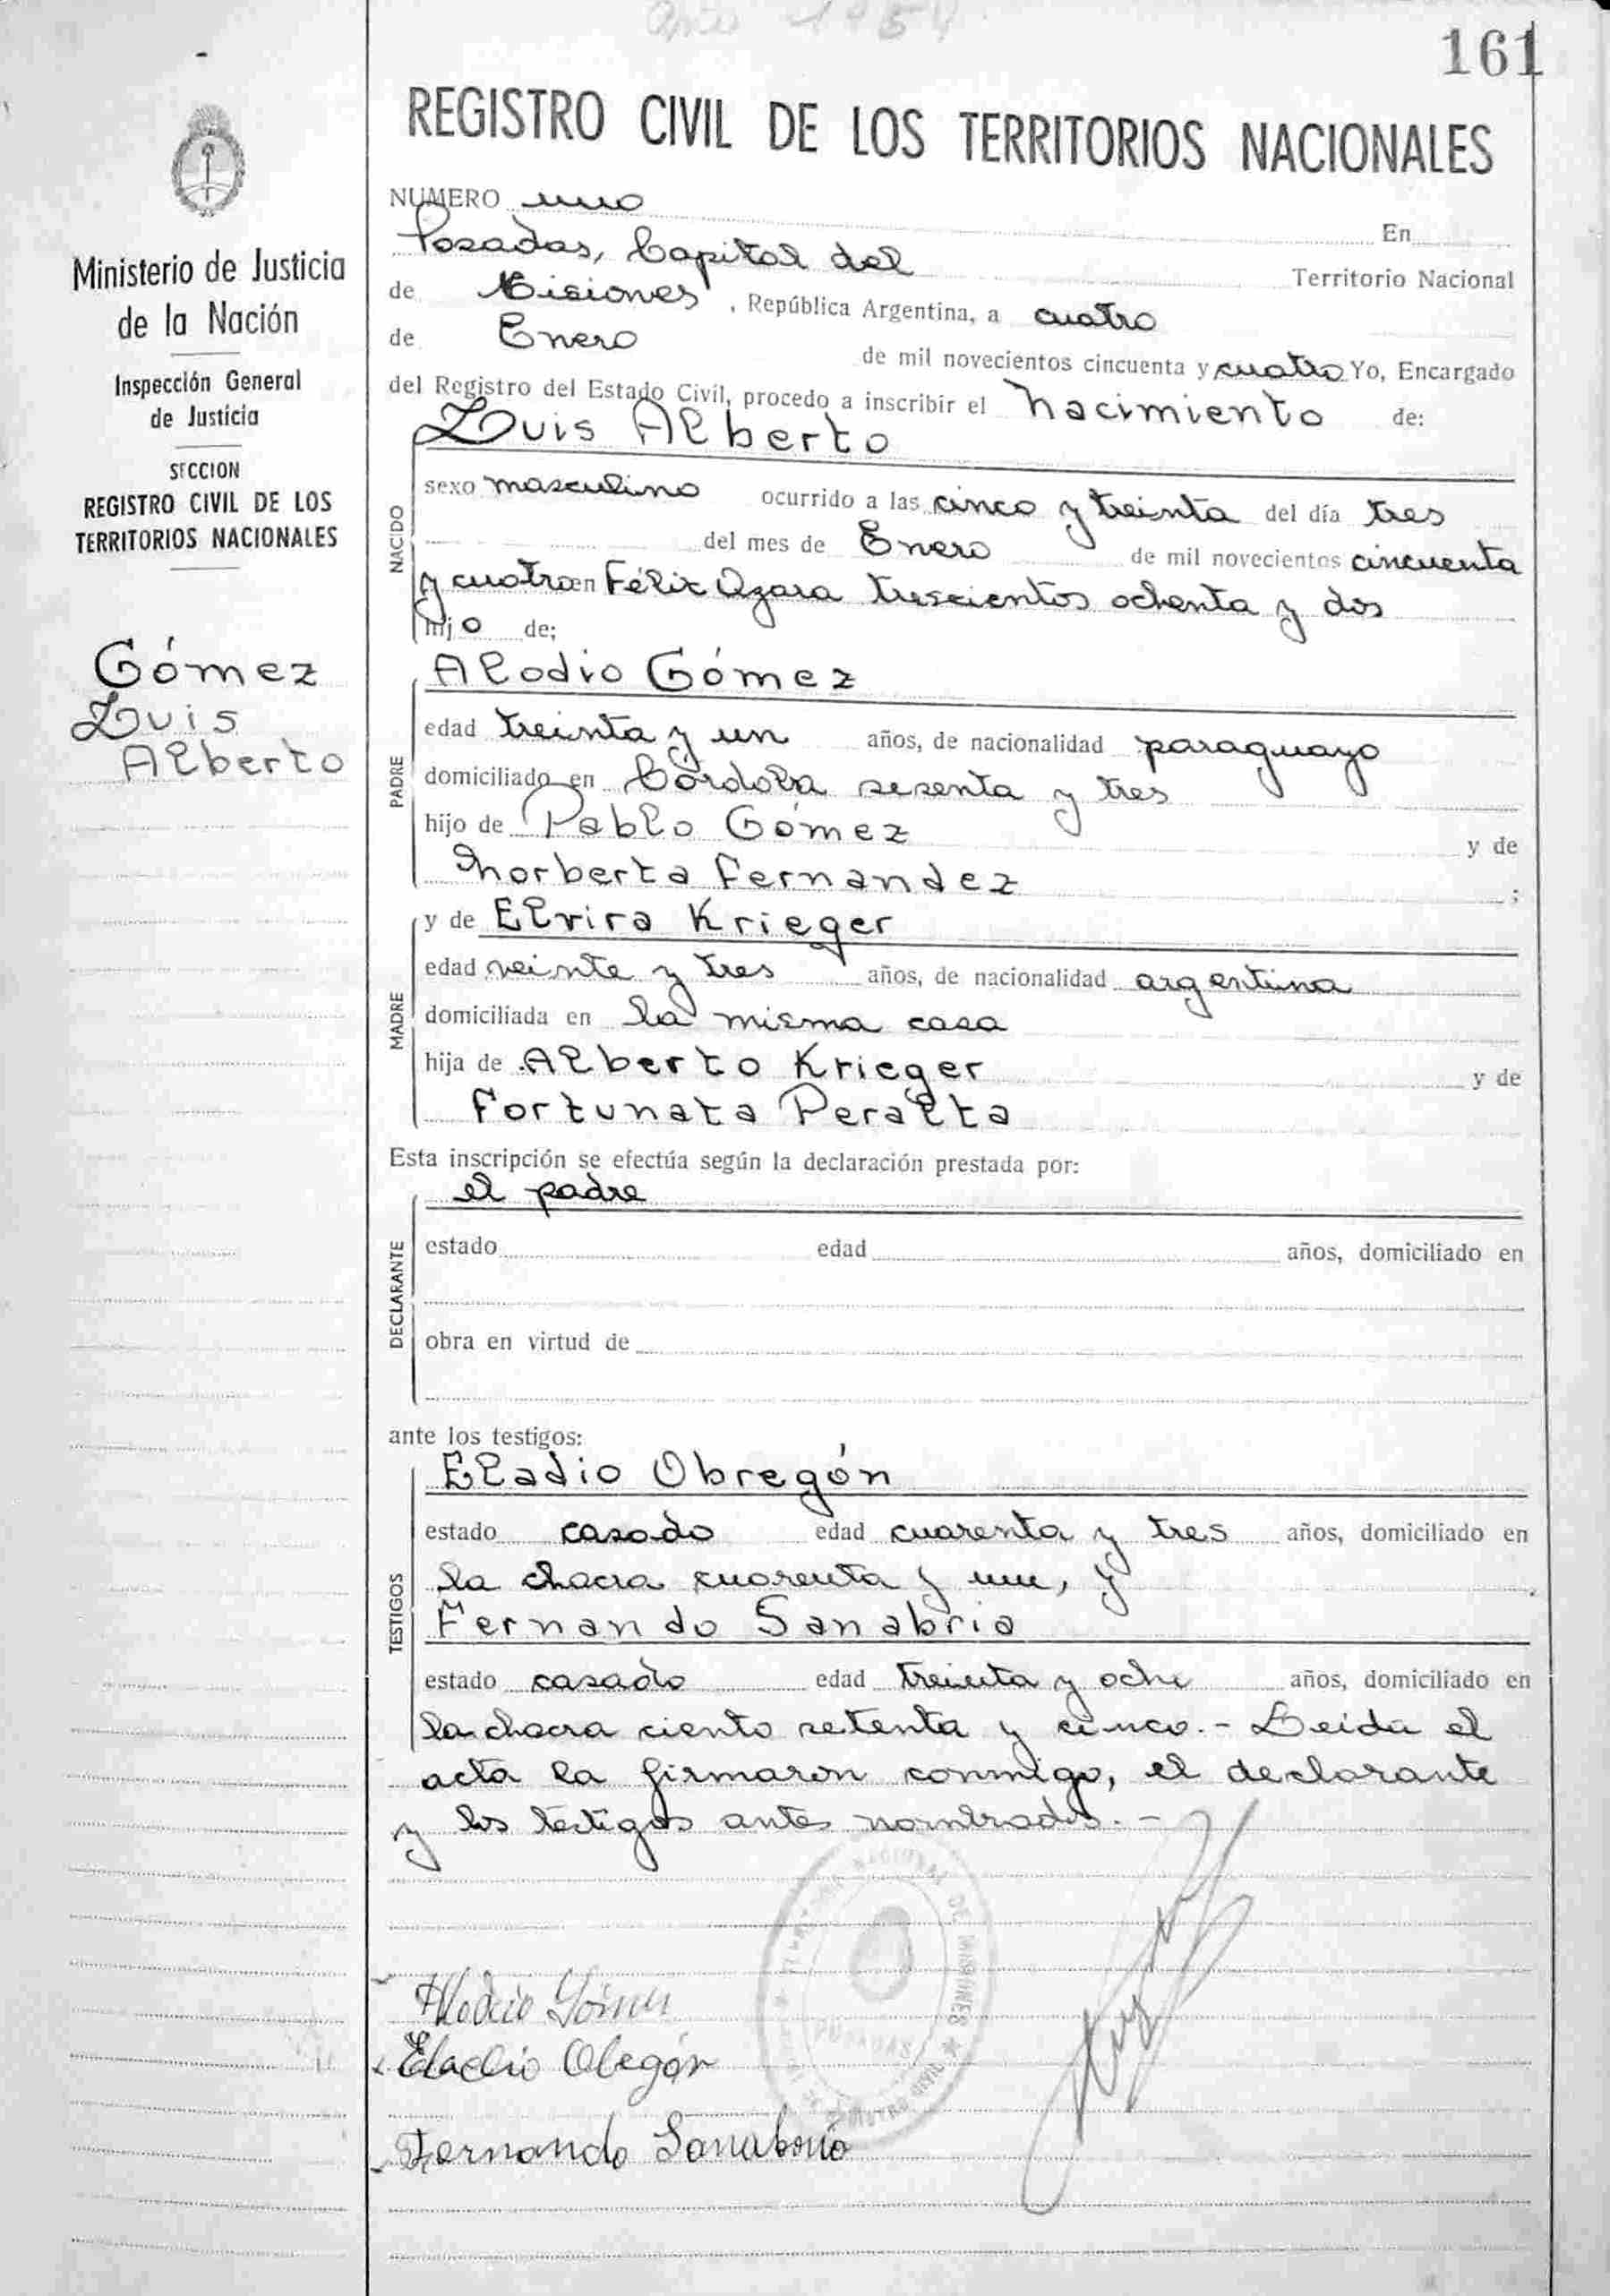 Año 1954
161
REGISTRO CIVIL DE LOS TERRITORIOS NACIONALES
Ministerio de Justicia
de la Nación
Inspección General
de Justicia
SECCION
REGISTRO CIVIL DE LOS
TERRITORIOS NACIONALES
Gómez
Luis
Alberto
NUMERO uno
En
Posadas, Capital del Territorio Nacional
de Misiones, República Argentina, a cuatro
de Enero de mil novecientos cincuenta y cuatro Yo, Encargado
del Registro del Estado Civil, procedo a inscribir el nacimiento de:
NACIDO
Luis Alberto
sexo masculino ocurrido a las cinco y treinta del día tres
del mes de Enero de mil novecientos cincuenta
y cuatro en Félix Azara trescientos ochenta y dos
hijo de;
PADRE
Alodio Gómez
edad treinta y un años, de nacionalidad paraguayo
domiciliado en Córdoba sesenta y tres
hijo de Pablo Gómez y de
Norberta Fernandez ;
MADRE
y de Elvira Krieger
edad veinte y tres años, de nacionalidad argentina
domiciliada en la misma casa
hija de Alberto Krieger y de
Fortunata Peralta
Esta inscripción se efectúa según la declaración prestada por:
DECLARANTE
el padre
estado edad años, domiciliado en
obra en virtud de
ante los testigos:
TESTIGOS
Eladio Obregón
estado casado edad cuarenta y tres años, domiciliado en
la chacra cuarenta y un, y
Fernando Sanabria
estado casado edad treinta y ocho años, domiciliado en
la chacra ciento setenta y cinco.- Leida el
acta la firmaron conmigo, el declarante
y los testigos antes nombrados.-
NACIONAL DE MISIONES
POSADAS
Alodio Gómez
Eladio Obregón
Fernando Sanabria